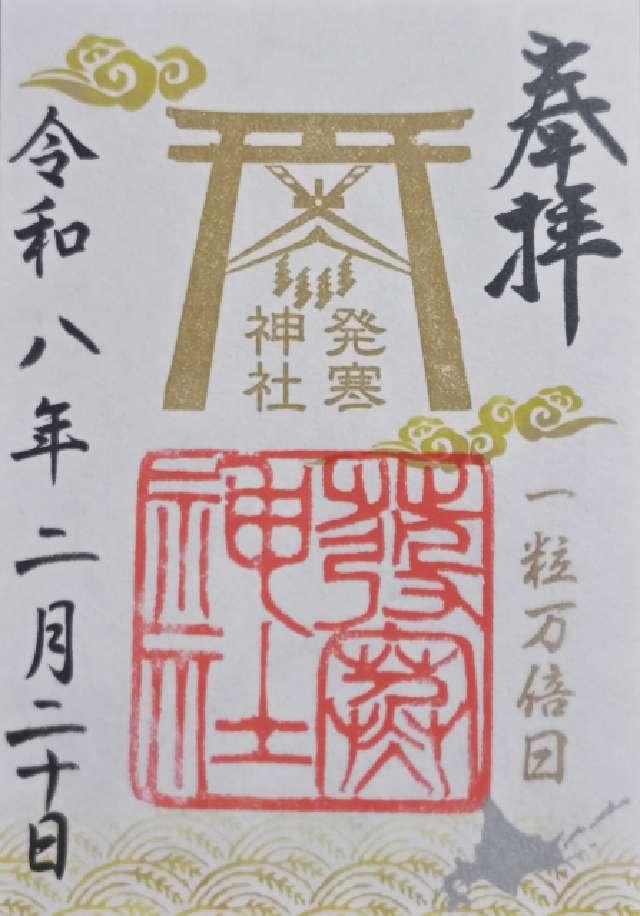 奉拝
発寒
神社
一粒万倍日
發寒
神社
令和八年二月二十日